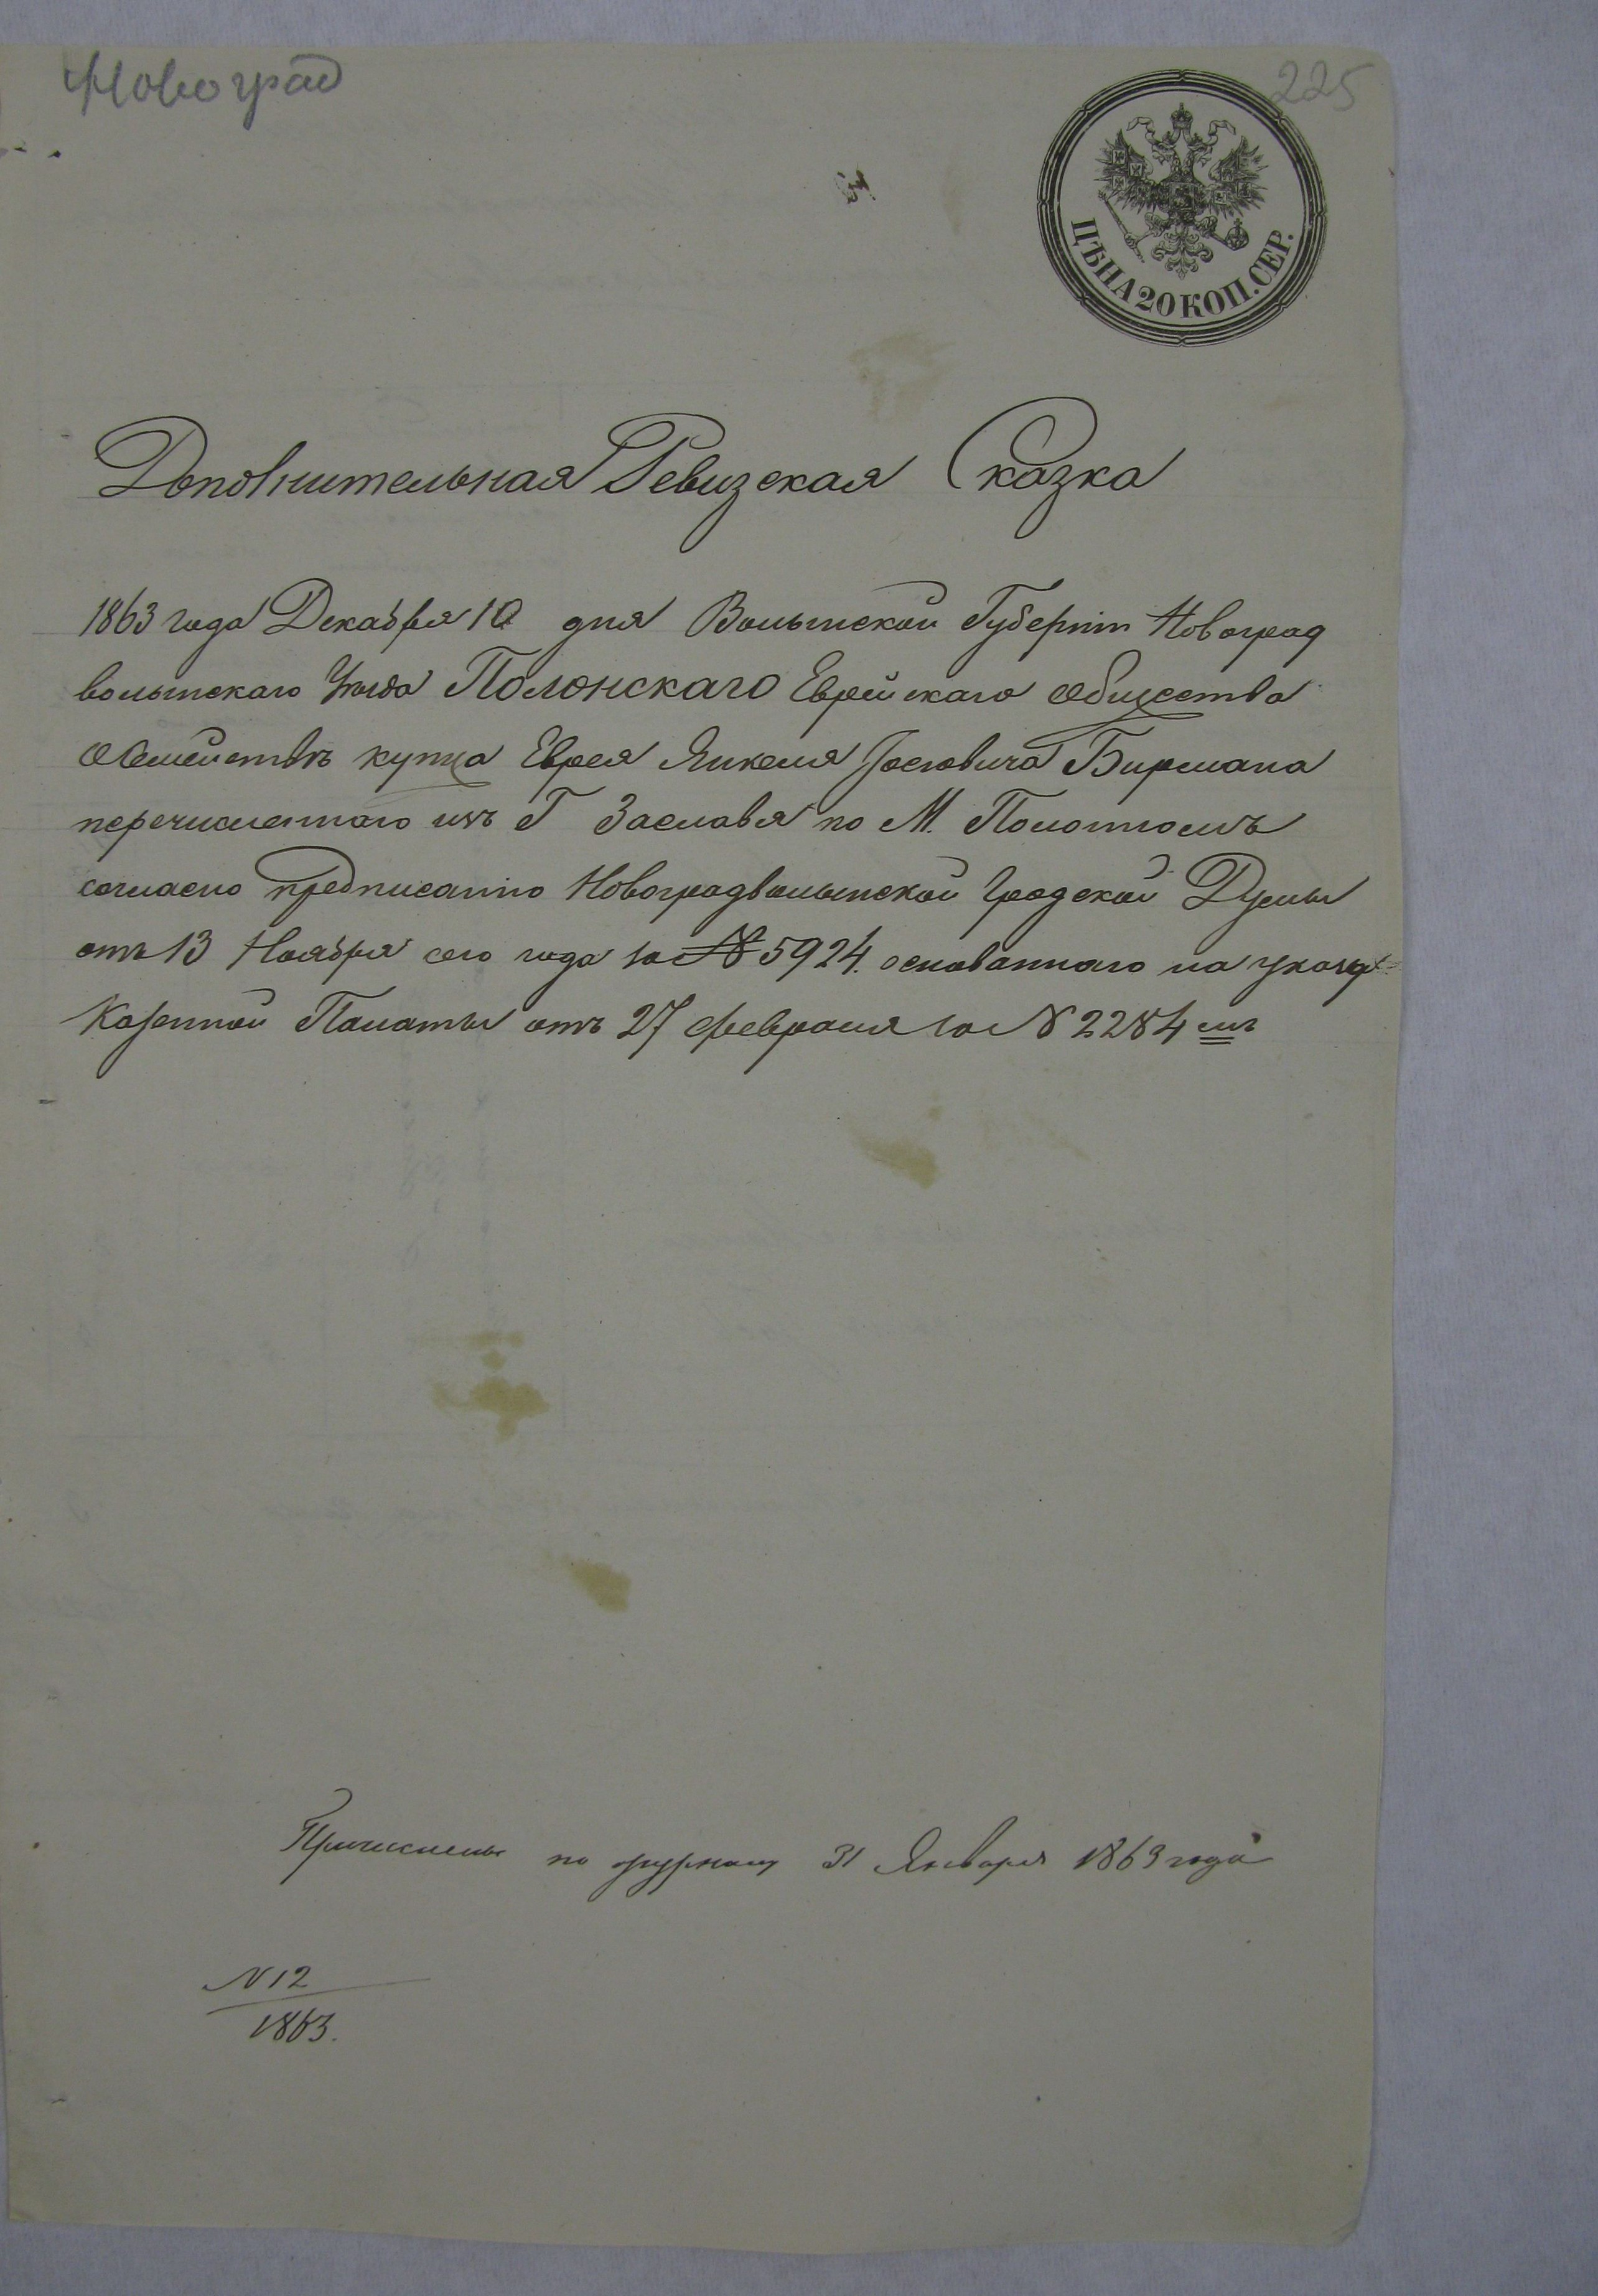 Новоград
225
ЦѢНА 20 КОП. СЕР.
Дополнительная Ревизская Сказка
1863 года Декабря 10 дня Волынской Губернии Новоград
волынскаго Уѣзда Полонскаго Еврейскаго Общества
о Семействѣ купца Еврея Янкеля Іосіовича Бирмана
перечисленнаго изъ Г Заславля по М. Полонномъ
согласно предписанію Новоградволынской Градской Думы
отъ 13 Ноября сего года за № 5924. основаннаго на указѣ
Казенной Палаты отъ 27 февраля за № 2284 мъ
Причислены по журналу 31 Января 1863 года
N 12
1863.